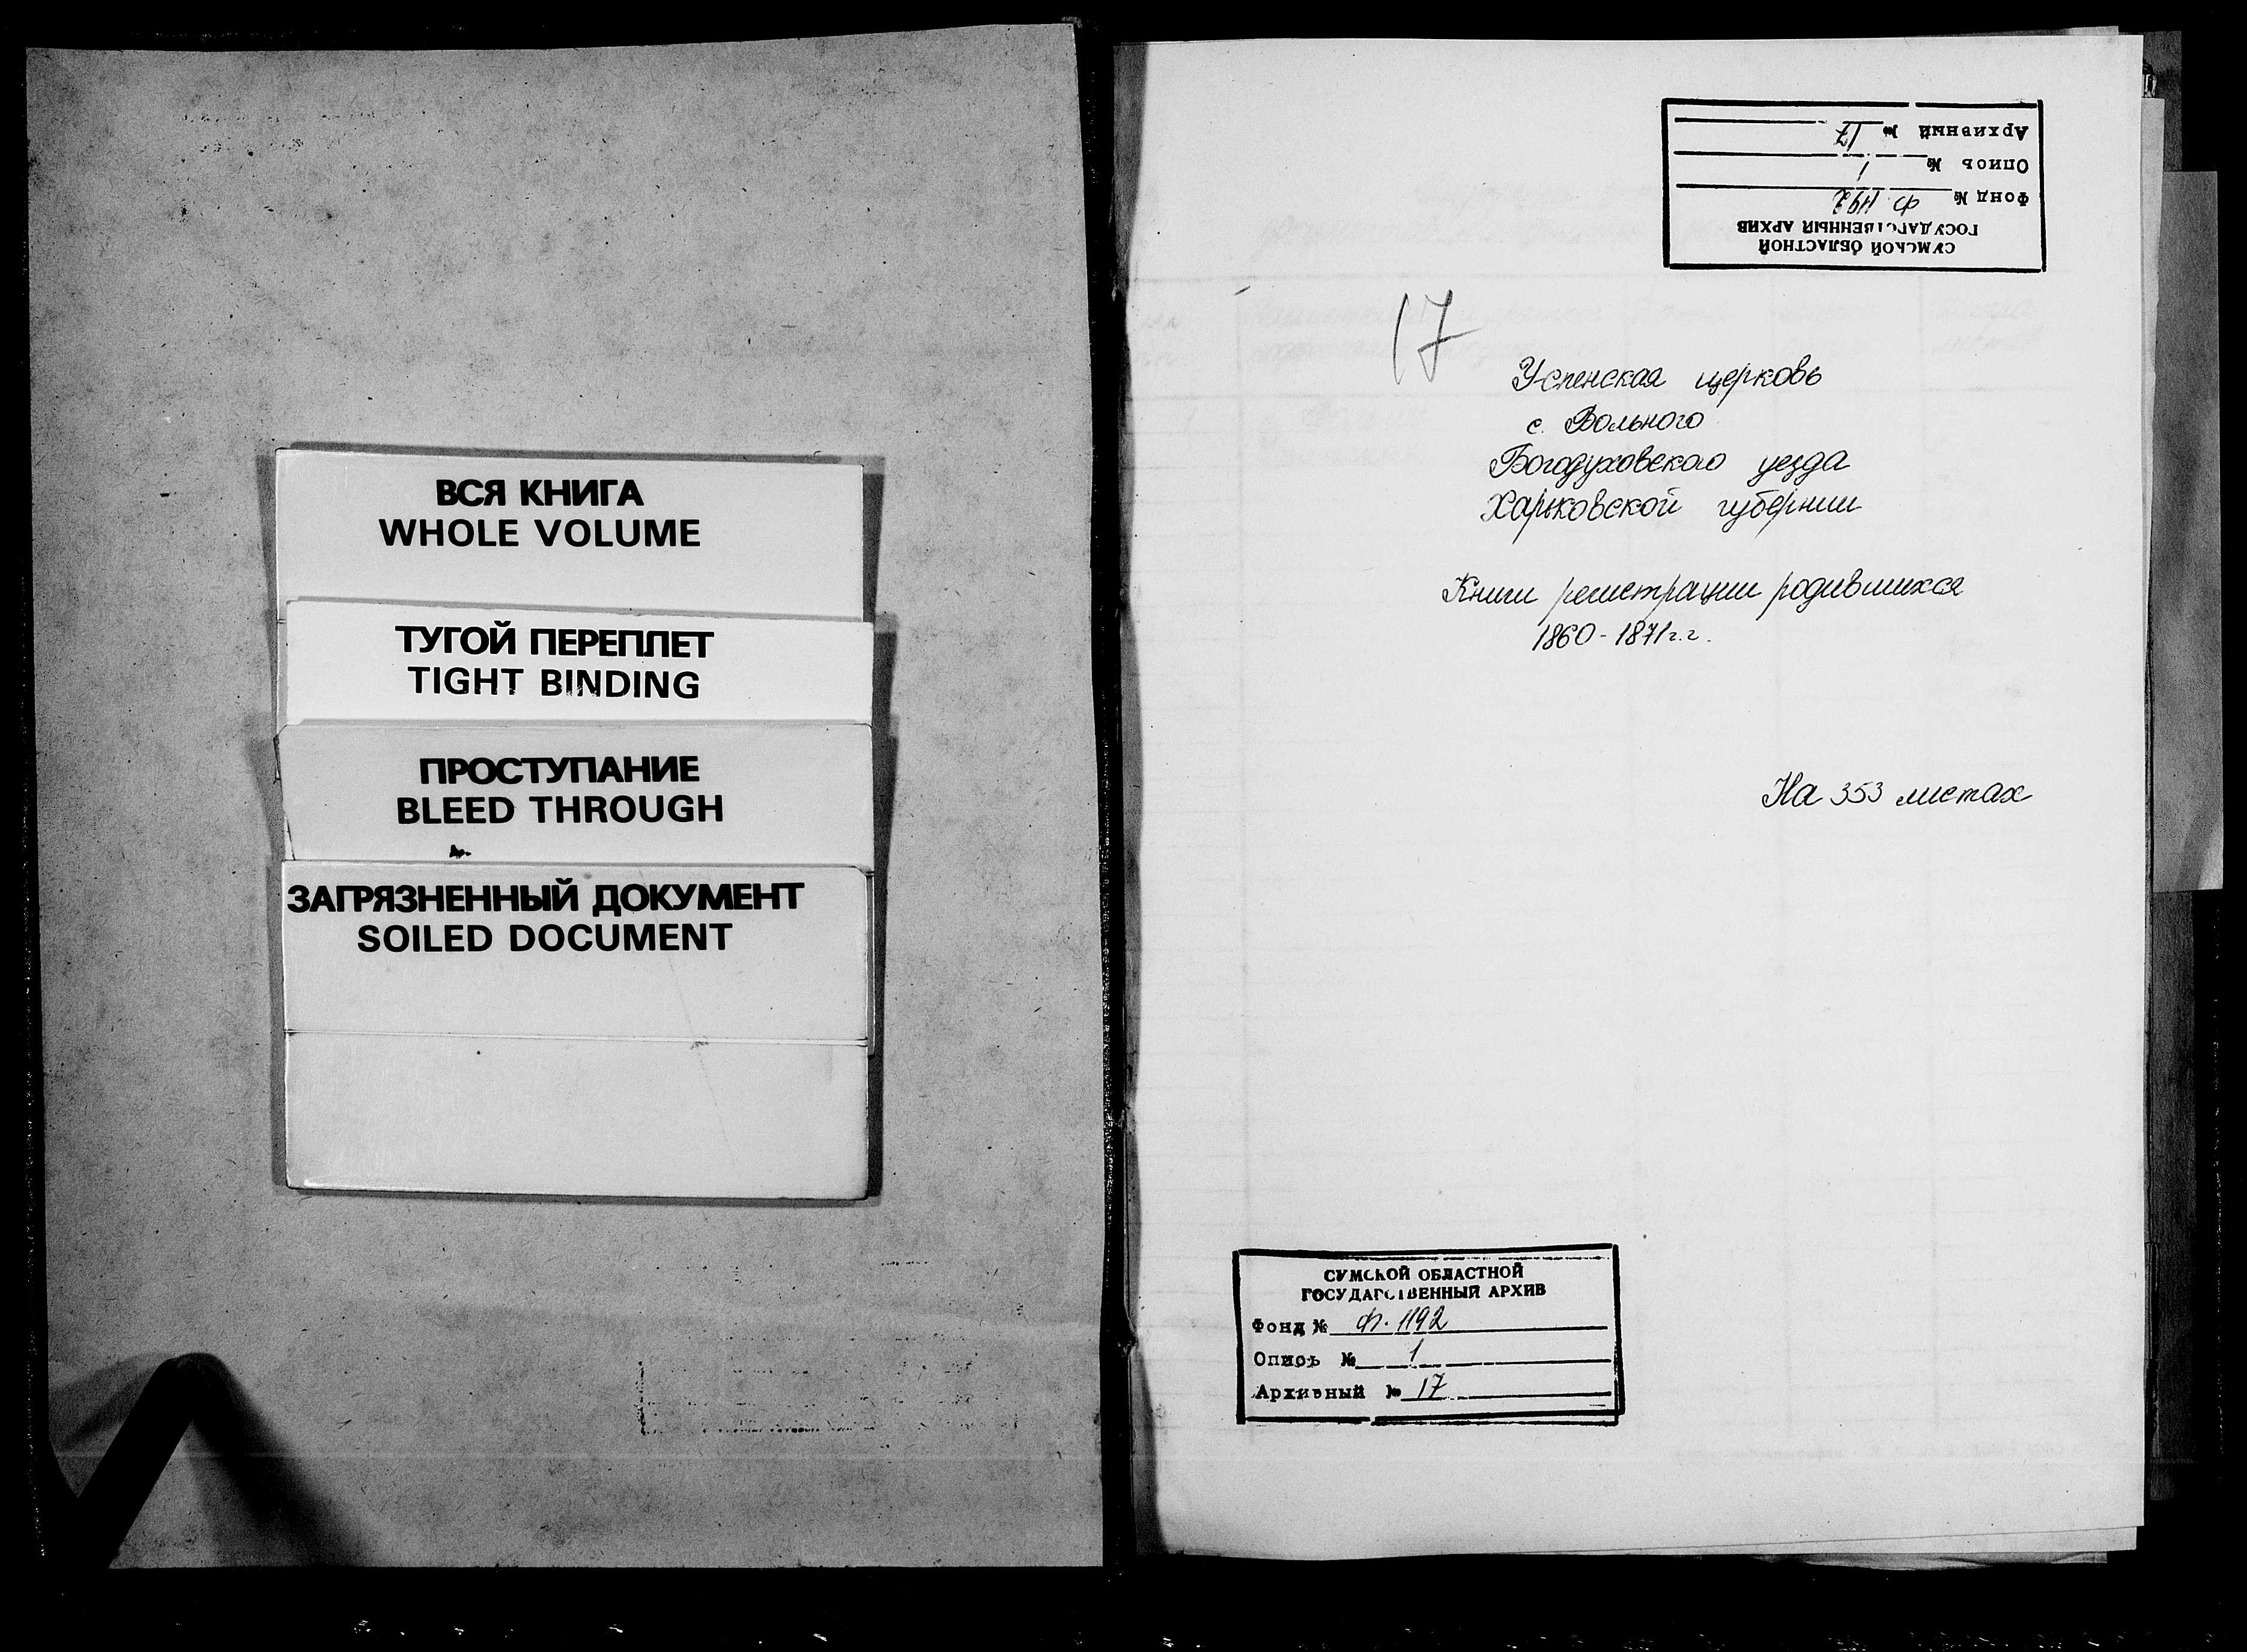 ВСЯ КНИГА
WHOLE VOLUME
ТУГОЙ ПЕРЕПЛЕТ
TIGHT BINDING
ПРОСТУПАНИЕ
BLEED THROUGH
ЗАГРЯЗНЕННЫЙ ДОКУМЕНТ
SOILED DOCUMENT
СУМСКОЙ ОБЛАСТНОЙ
ГОСУДАРСТВЕННЫЙ АРХИВ
Фонд № Ф. 1192
Опись № 1
Архивный № 17
17
Успенская церковь
с. Вольного
Богодуховского уезда
Харьковской губернии
Книги регистрации родившихся
1860-1871 г.г.
На 353 листах
СУМСКОЙ ОБЛАСТНОЙ
ГОСУДАРСТВЕННЫЙ АРХИВ
Фонд № Ф. 1192
Опись № 1
Архивный № 17